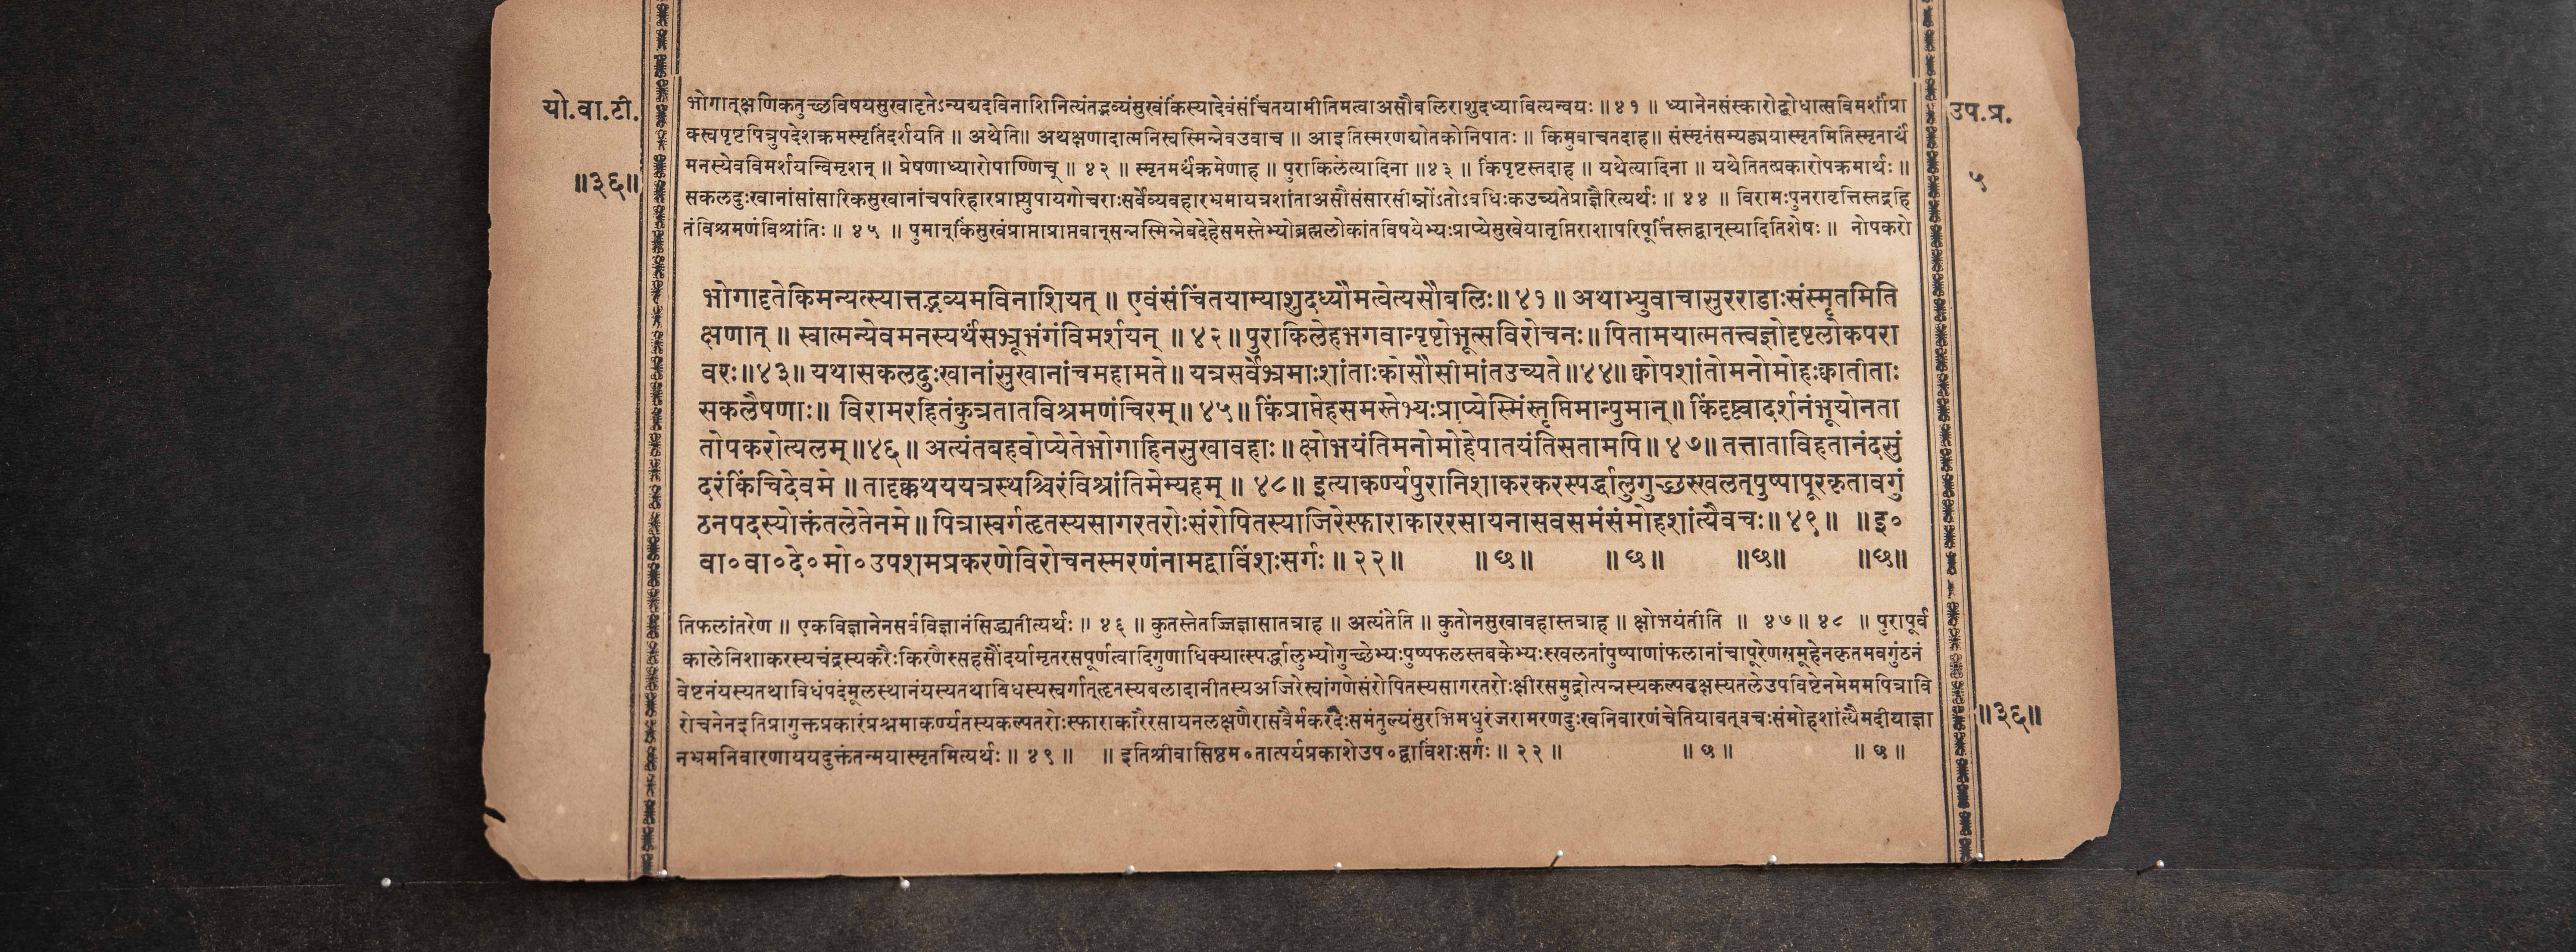 यो.वा.टी.
॥३६॥
उप.प्र.
५
भोगात्क्षणिकतुच्छविषयसुखादृतेऽन्यद्यदविनाशिनित्यंतद्भव्यंसुखंकिंस्यादेवंसंचिंतयामीतिमत्वाअसौबलिराशुदध्यावित्यन्वयः ॥४१॥ ध्यानेनसंस्कारोद्बोधात्सविमर्शंप्रा
क्स्वपृष्टपित्रुपदेशक्रमस्मृतिंदर्शयति ॥ अथेति॥ अथक्षणादात्मनिस्वस्मिन्नेवउवाच ॥ आइतिस्मरणद्योतकोनिपातः ॥ किमुवाचतदाह॥ संस्मृतंसम्यङ्मयास्मृतमितिस्मृतार्थं
मनस्येवविमर्शयन्विमृशन् ॥ प्रेषणाध्यारोपाण्णिच् ॥ ४२ ॥ स्मृतमर्थंक्रमेणाह ॥ पुराकिलेत्यादिना ॥४३॥ किंपृष्टस्तदाह ॥ यथेत्यादिना ॥ यथेतितत्प्रकारोपक्रमार्थः ॥
सकलदुःखानांसांसारिकसुखानांचपरिहारप्राप्त्युपायगोचराःसर्वेव्यवहारभ्रमायत्रशांताअसौसंसारसीम्नोंऽतोऽवधिःकउच्यतेप्राज्ञैरित्यर्थः ॥ ४४ ॥ विरामःपुनरावृत्तिस्तद्रहि
तंविश्रमणंविश्रांतिः ॥ ४५ ॥ पुमान्किंसुखंप्राप्ताप्राप्तवान्सन्नस्मिन्नेवदेहेसमस्तेभ्योब्रह्मलोकांतविषयेभ्यःप्राप्येसुखेयातृप्तिराशापरिपूर्तिस्तद्वान्स्यादितिशेषः ॥ नोपकरो
भोगादृतेकिमन्यत्स्यात्तद्भव्यमविनाशियत् ॥ एवंसंचिंतयाम्याशुदध्यौमत्वेत्यसौबलिः॥४१॥ अथाभ्युवाचासुरराडाःसंस्मृतमिति
क्षणात् ॥ स्वात्मन्येवमनस्यर्थंसभ्रूभंगंविमर्शयन् ॥ ४२॥ पुराकिलेहभगवान्पृष्टोभूत्सविरोचनः॥ पितामयात्मतत्त्वज्ञोदृष्टलोकपरा
वरः॥४३॥ यथासकलदुःखानांसुखानांचमहामते॥ यत्रसर्वेभ्रमाःशांताःकोसौसीमांतउच्यते॥४४॥ क्वोपशांतोमनोमोहःक्वातीताः
सकलैषणाः॥ विरामरहितंकुत्रतातविश्रमणंचिरम्॥ ४५॥ किंप्राप्तेहसमस्तेभ्यःप्राप्येस्मिंस्तृप्तिमान्पुमान्॥ किंदृष्ट्वादर्शनंभूयोनता
तोपकरोत्यलम्॥४६॥ अत्यंतबहवोप्येतेभोगाहिनसुखावहाः॥ क्षोभयंतिमनोमोहेपातयंतिसतामपि॥ ४७॥ तत्ताताविहतानंदसुं
दरंकिंचिदेवमे ॥ तादृक्कथययत्रस्थश्चिरंविश्रांतिमेम्यहम् ॥ ४८॥ इत्याकर्ण्यपुरानिशाकरकरस्पर्द्धालुगुच्छस्खलत्पुष्पापूरकृतावगुं
ठनपदस्योक्तंतलेतेनमे॥ पित्रास्वर्गहृतस्यसागरतरोःसंरोपितस्याजिरेस्फाराकाररसायनासवसमंसंमोहशांत्यैवचः॥ ४९॥ ॥इ०
वा०वा०दे०मो०उपशमप्रकरणेविरोचनस्मरणंनामद्वाविंशःसर्गः॥ २२॥ ॥ छ॥ ॥ छ॥ ॥छ॥ ॥छ॥
तिफलांतरेण ॥ एकविज्ञानेनसर्वविज्ञानंसिद्ध्यतीत्यर्थः ॥ ४६ ॥ कुतस्तेतज्जिज्ञासातत्राह ॥ अत्यंतेति ॥ कुतोनसुखावहास्तत्राह ॥ क्षोभयंतीति ॥ ४७॥ ४८ ॥ पुरापूर्व
कालेनिशाकरस्यचंद्रस्यकरैःकिरणैस्सहसौंदर्यामृतरसपूर्णत्वादिगुणाधिक्यात्स्पर्द्धालुभ्योगुच्छेभ्यःपुष्पफलस्तबकेभ्यःस्खलतांपुष्पाणांफलानांचापूरेणसमूहेनकृतमवगुंठनं
वेष्टनंयस्यतथाविधंपदंमूलस्थानंयस्यतथाविधस्यस्वर्गात्हृतस्यबलादानीतस्यअजिरेस्वांगणेसंरोपितस्यसागरतरोःक्षीरसमुद्रोत्पन्नस्यकल्पवृक्षस्यतलेउपविष्टेनमेममपित्रावि
रोचनेनइतिप्रागुक्तप्रकारंप्रश्नमाकर्ण्यतस्यकल्पतरोःस्फाराकारैरसायनलक्षणैरासवैर्मकरंदैःसमंतुल्यंसुरभिमधुरंजरामरणदुःखनिवारणंचेतियावत्वचःसंमोहशांत्यैमदीयाज्ञा
नभ्रमनिवारणाययदुक्तंतन्मयास्मृतमित्यर्थः ॥ ४९ ॥ ॥ इतिश्रीवासिष्ठम०तात्पर्यप्रकाशेउप०द्वाविंशःसर्गः ॥ २२ ॥ ॥ छ ॥ ॥ छ ॥
॥३६॥